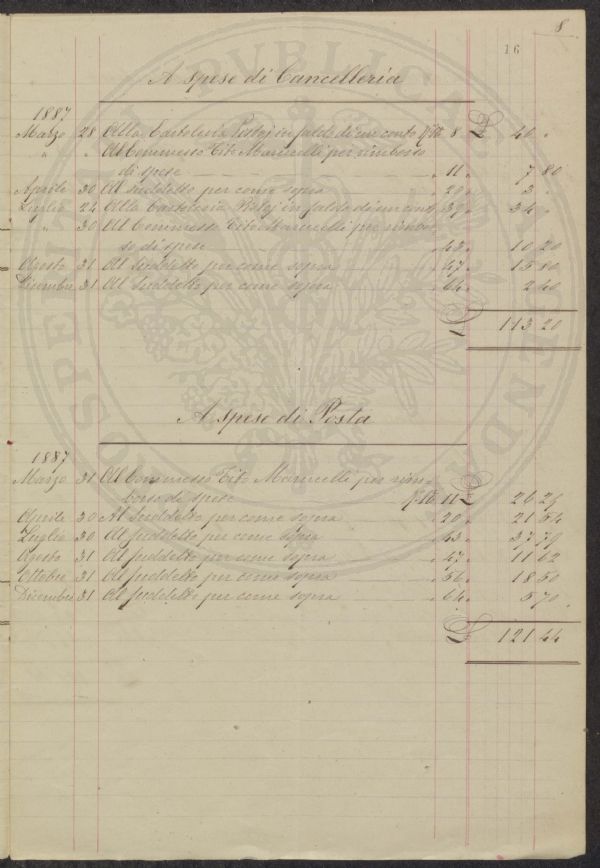 8
16
A spese di Cancelleria
1887
Marzo 28 Alla Cartoleria in saldo di un conto 8 £ 40 "
" " Al Commesso Tito Marucelli per rimborso
di spese " 11 " 7 80
Aprile 30 Al suddetto per come sopra " 20 " 3 "
Luglio 24 Alla Cartoleria in saldo di un conto " 39 " 34 "
" 30 Al Commesso Tito Marucelli per rimbor-
so di spese " 43 " 10 20
Agosto 31 Al suddetto per come sopra " 47 " 15 80
Dicembre 31 Al suddetto per come sopra " 64 " 2 40
£ 113 20
A spese di Posta
1887
Marzo 31 Al Commesso Tito Marucelli per rim-
borso di spese 11 £ 26 29
Aprile 30 Al suddetto per come sopra " 20 " 21 54
Luglio 30 Al suddetto per come sopra " 43 " 37 79
Agosto 31 Al suddetto per come sopra " 47 " 11 62
Ottobre 31 Al suddetto per come sopra " 56 " 18 50
Dicembre 31 Al suddetto per come sopra " 64 " 5 70
£ 121 44